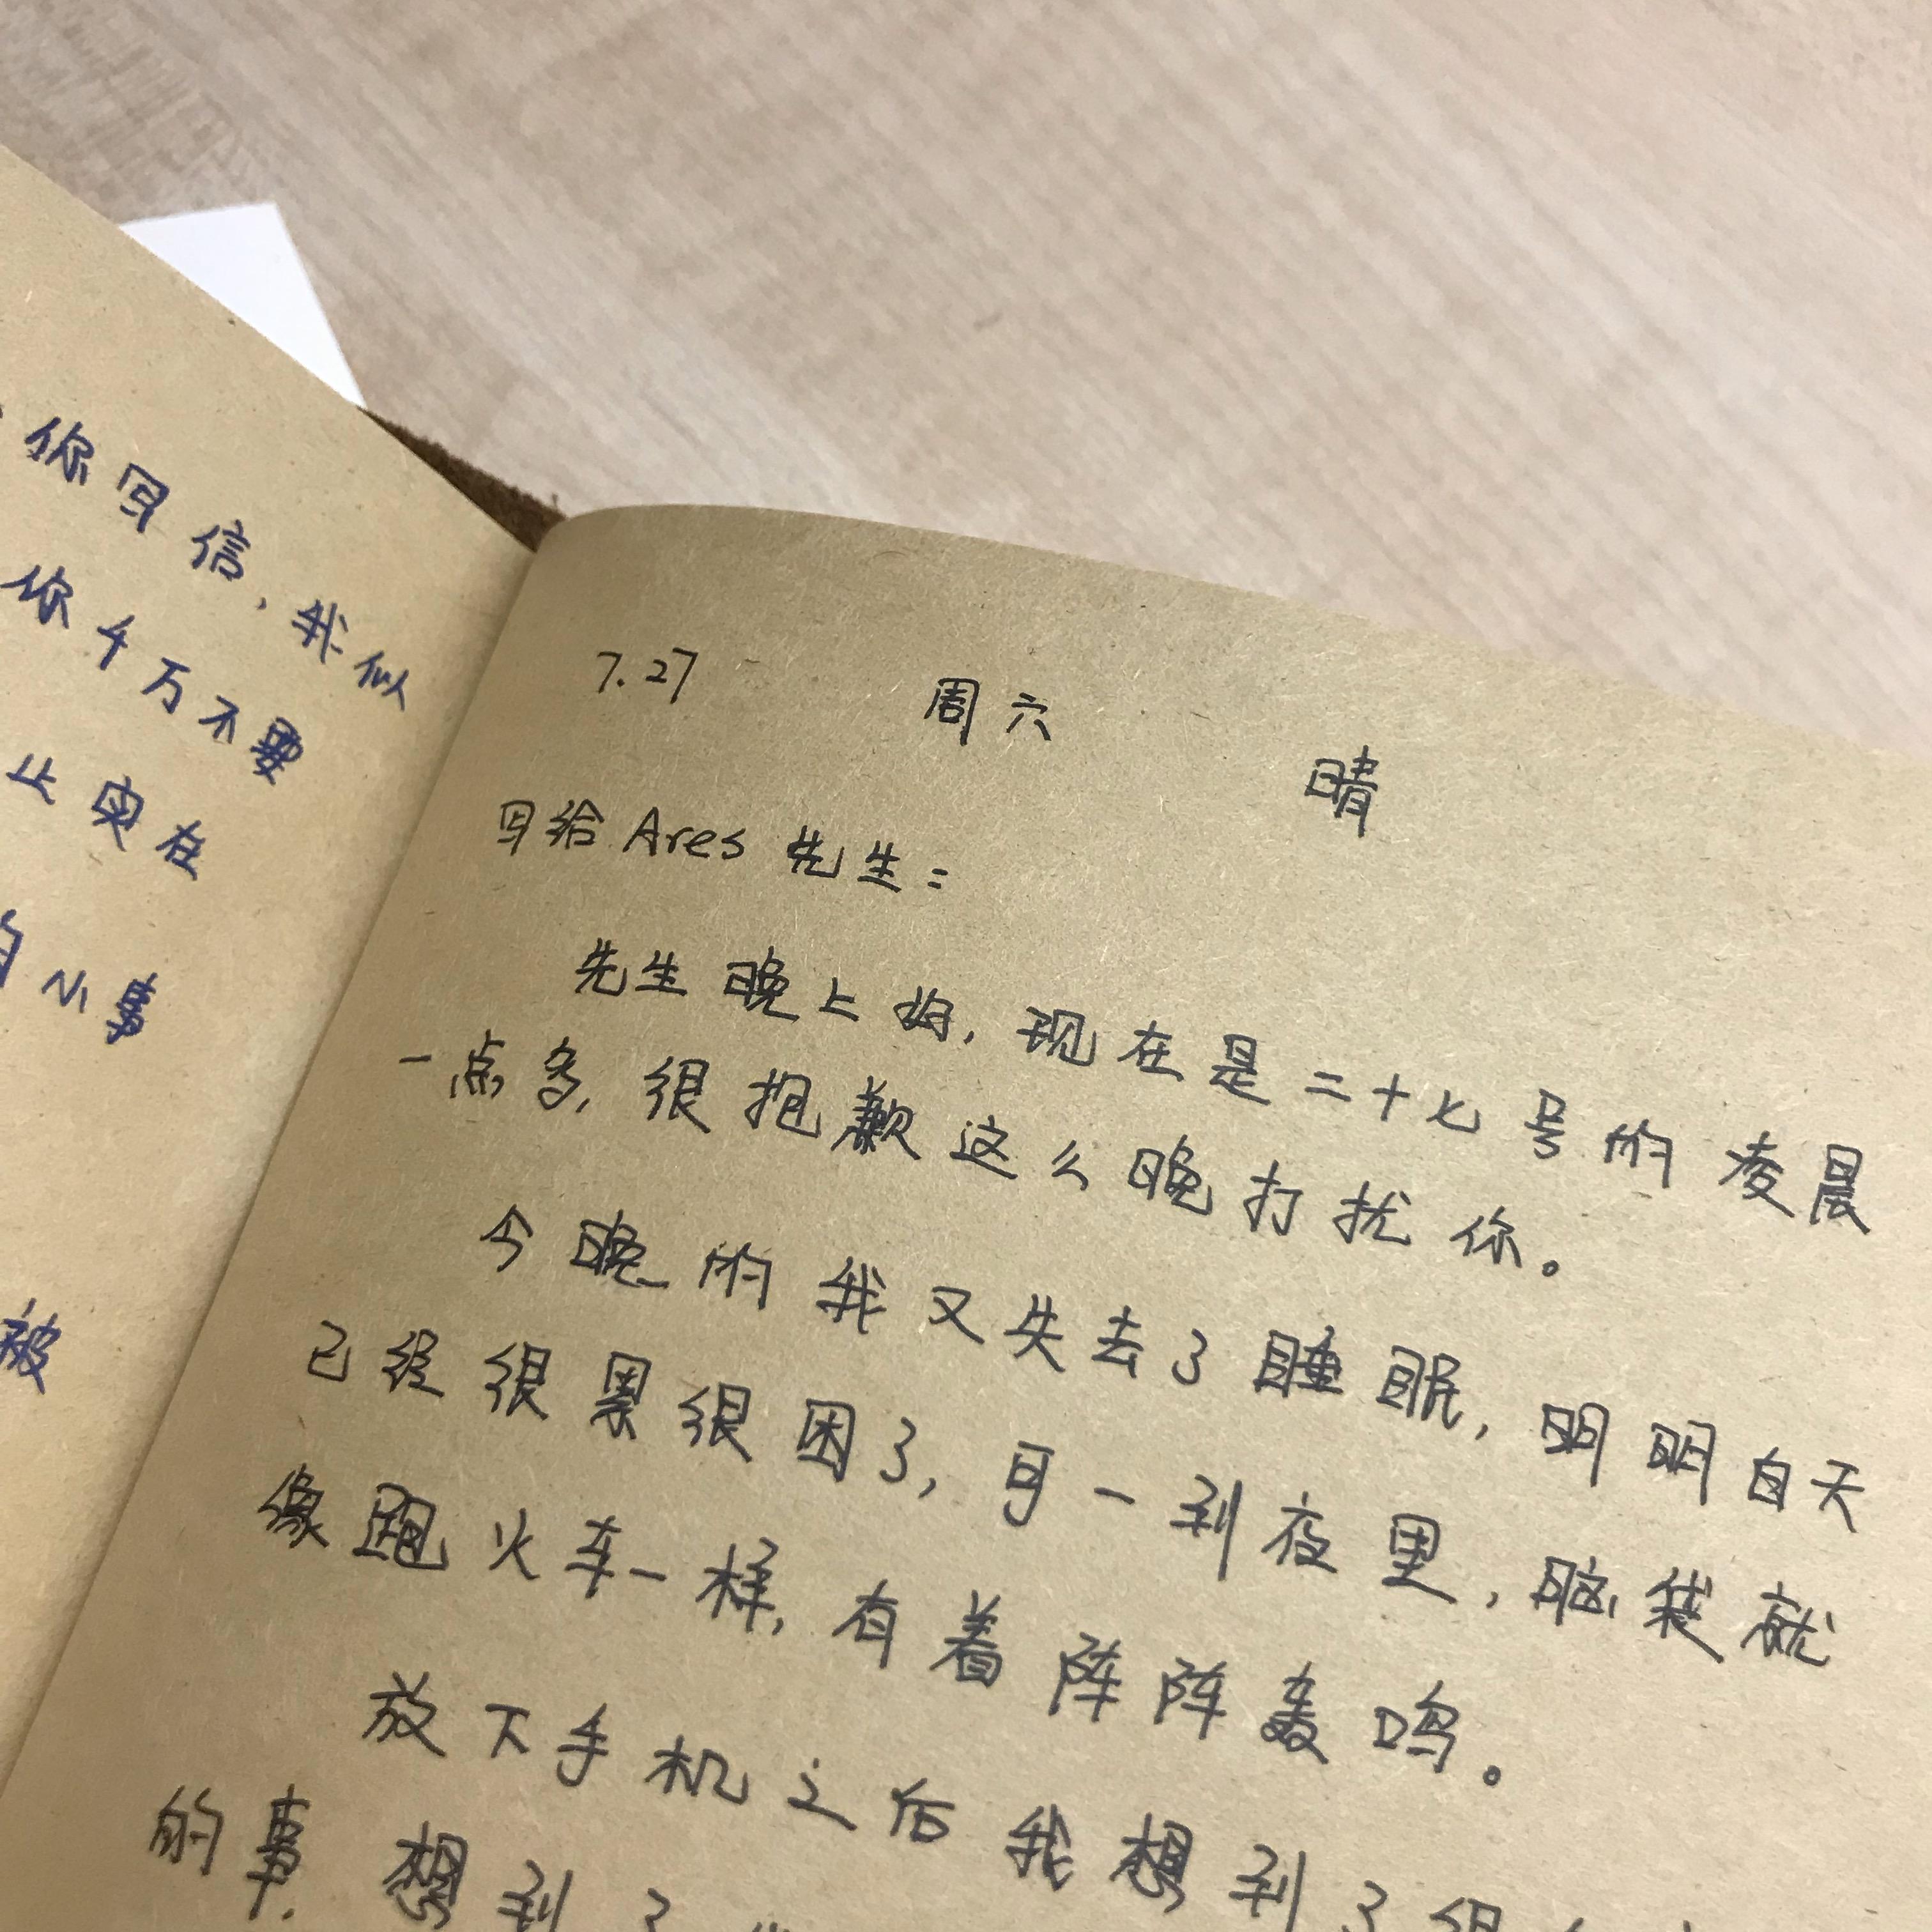 你回信,我似
你千万不要
止实在
的小事
被
7.27 周六 晴
写给Ares先生:
先生晚上好,现在是二十七号的凌晨
一点多,很抱歉这么晚打扰你。
今晚的我又失去了睡眠,明明白天
已经很累很困了,可一到夜里,脑袋就
像跑火车一样,有着阵阵轰鸣。
放下手机之后我想到了很
的事,想到了